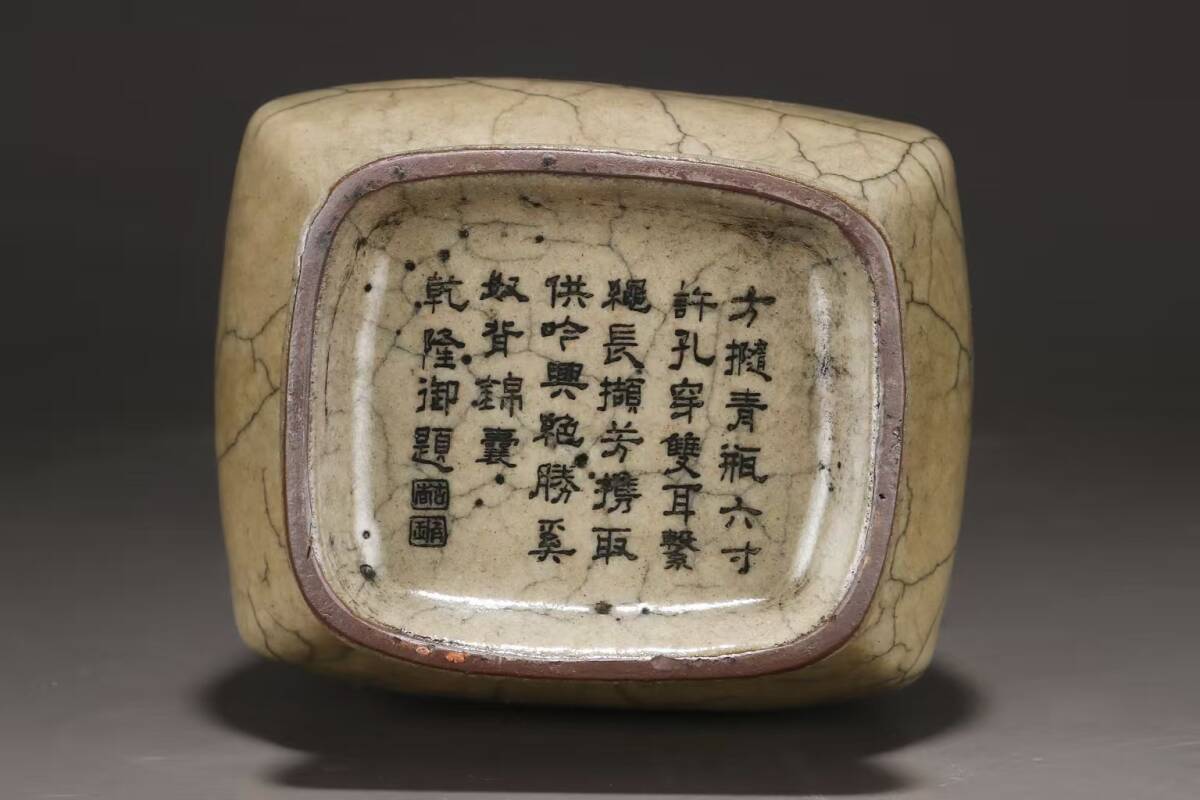 方撱青瓶六寸
許孔穿雙耳繫
繩長擷芳攜取
供吟興絶勝奚
奴背錦囊
乾隆御題